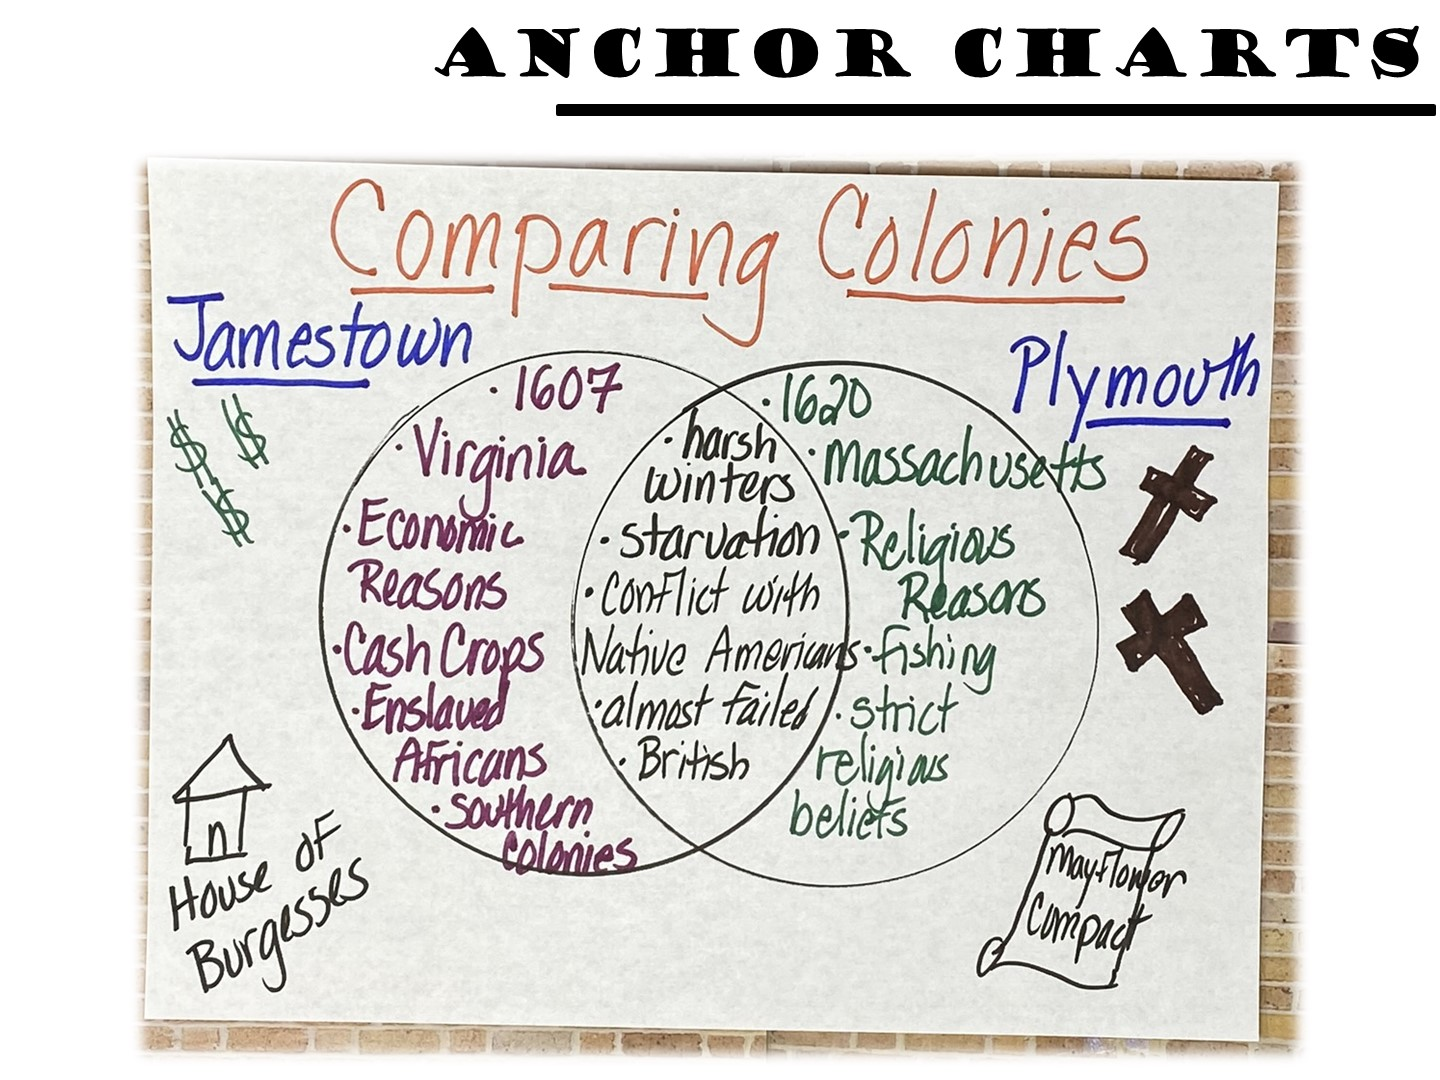 ANCHOR CHARTS
Comparing Colonies
Jamestown
$ $
$
• 1607
• Virginia
• Economic
Reasons
• Cash Crops
• Enslaved
Africans
• Southern
Colonies
• harsh
winters
• starvation
• Conflict with
Native Americans
• almost failed
• British
Plymouth
• 1620
• Massachusetts
• Religious
Reasons
• fishing
• strict
religious
beliefs
House of
Burgesses
Mayflower
Compact